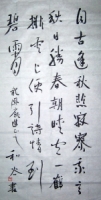 自古逢秋悲寂寥我言
秋日胜春朝晴空一鹤
排云上便引诗情到
碧霄